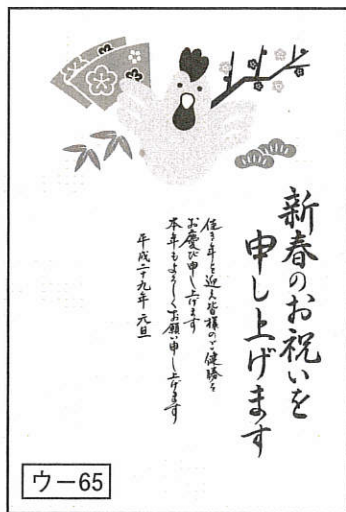 新春のお祝いを
申し上げます
佳き年を迎え皆様のご健勝を
お慶び申し上げます
本年もよろしくお願い申し上げます
平成二十九年 元旦
ウー65